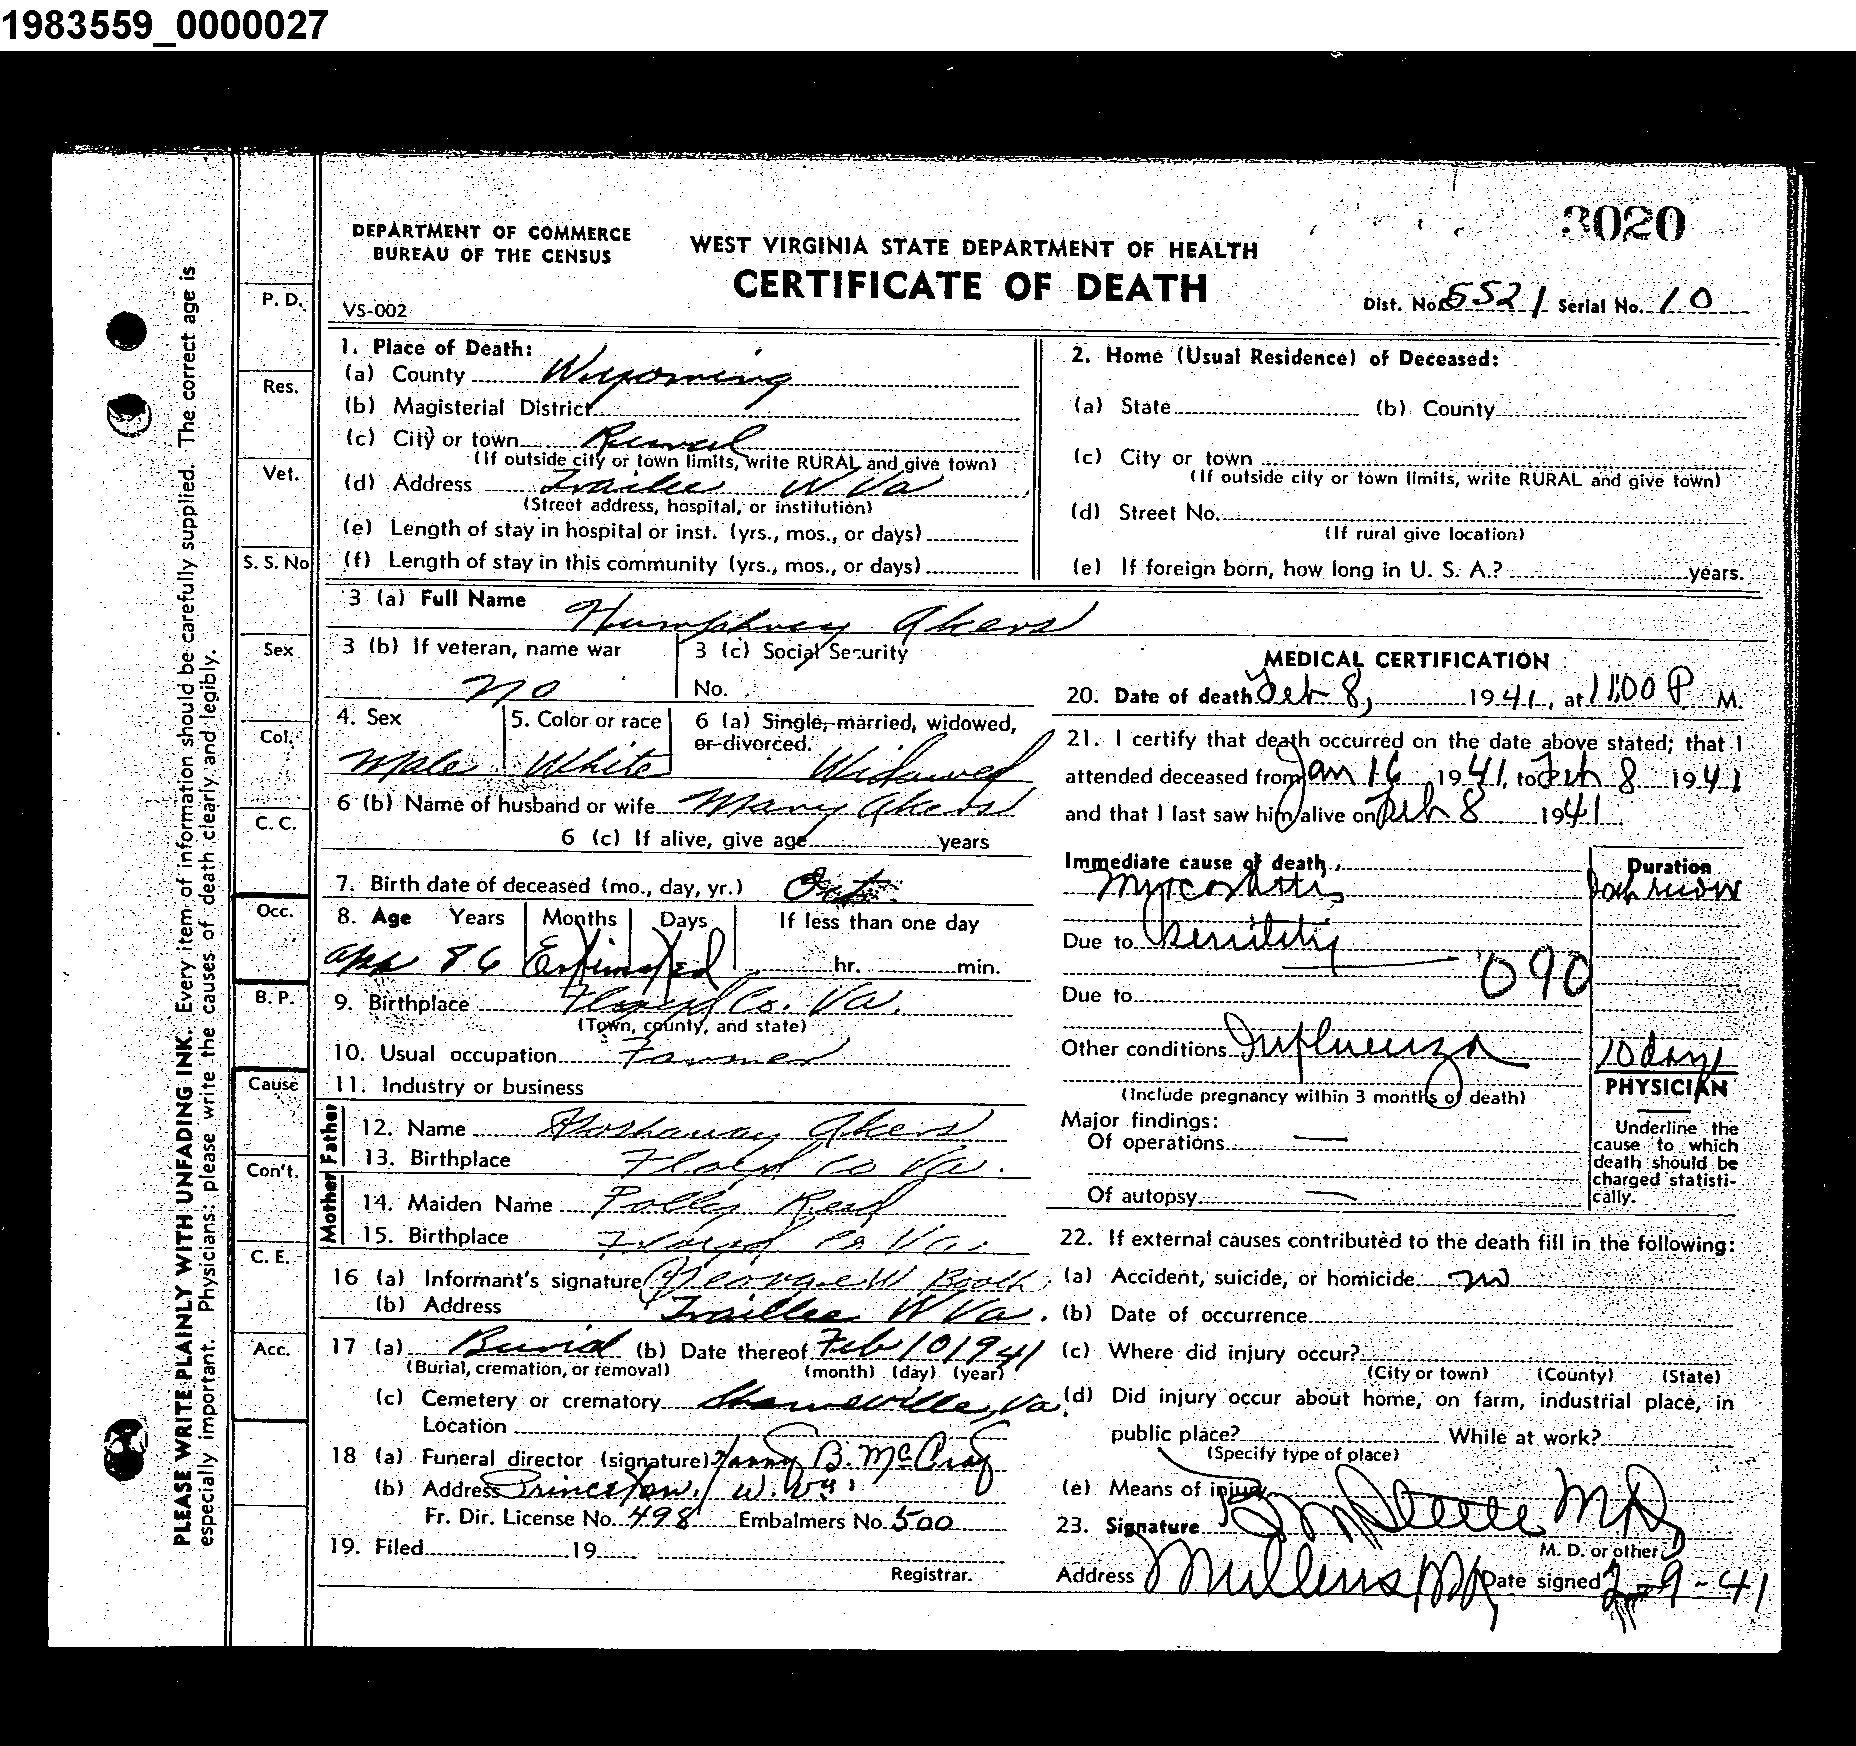 1983559_0000027
3020
DEPARTMENT OF COMMERCE
BUREAU OF THE CENSUS
WEST VIRGINIA STATE DEPARTMENT OF HEALTH
CERTIFICATE OF DEATH
VS-002
Dist. No. 5521 Serial No. 10
PLEASE WRITE PLAINLY WITH UNFADING INK. Every item of information should be carefully supplied. The correct age is
especially important. Physicians: please write the causes of death clearly and legibly.
P. D.
Res.
Vet.
S. S. No
Sex
Col.
C. C.
Occ.
B. P.
Cause
Con't.
C. E.
Acc.
1. Place of Death:
(a) County Wyoming
(b) Magisterial District
(c) City or town Rural
(If outside city or town limits, write RURAL and give town)
(d) Address W Va
(Street address, hospital, or institution)
(e) Length of stay in hospital or inst. (yrs., mos., or days)
(f) Length of stay in this community (yrs., mos., or days)
2. Home (Usual Residence) of Deceased:
(a) State (b) County
(c) City or town
(If outside city or town limits, write RURAL and give town)
(d) Street No.
(If rural give location)
(e) If foreign born, how long in U. S. A.? years.
3 (a) Full Name Humphrey Akers
3 (b) If veteran, name war
no
3 (c) Social Security
No.
4. Sex
Male
5. Color or race
White
6 (a) Single, married, widowed,
or divorced.
Widowed
6 (b) Name of husband or wife Mary Akers
6 (c) If alive, give age years
7. Birth date of deceased (mo., day, yr.) Oct.
8. Age Years Months Days If less than one day
86 Estimated hr. min.
9. Birthplace Floyd Co. Va.
(Town, county, and state)
10. Usual occupation Farmer
11. Industry or business
Father
12. Name Akers
13. Birthplace Floyd Co Va.
Mother
14. Maiden Name Polly Reed
15. Birthplace Floyd Co Va.
16 (a) Informant's signature George W Booth
(b) Address W Va.
17 (a) Burial (b) Date thereof Feb 10 1941
(Burial, cremation, or removal) (month) (day) (year)
(c) Cemetery or crematory Va.
Location
18 (a) Funeral director (signature) B. McCray
(b) Address Princeton, W. Va.
Fr. Dir. License No. 498 Embalmers No. 500
19. Filed 19
Registrar.
MEDICAL CERTIFICATION
20. Date of death Feb 8, 1941, at 11:00 P. M.
21. I certify that death occurred on the date above stated; that I
attended deceased from Jan 16 1941, to Feb 8 1941
and that I last saw him alive on Feb 8 1941
Immediate cause of death
Duration
Myocarditis
Due to Senility
090
Due to
Other conditions Influenza
10 days
(Include pregnancy within 3 months of death)
PHYSICIAN
Underline the
cause to which
death should be
charged statisti-
cally.
Major findings:
Of operations —
Of autopsy —
22. If external causes contributed to the death fill in the following:
(a) Accident, suicide, or homicide no
(b) Date of occurrence
(c) Where did injury occur?
(City or town) (County) (State)
(d) Did injury occur about home, on farm, industrial place, in
public place? While at work?
(Specify type of place)
(e) Means of injury
23. Signature M D
M. D. or other
Address Mullens Date signed 2-9-41